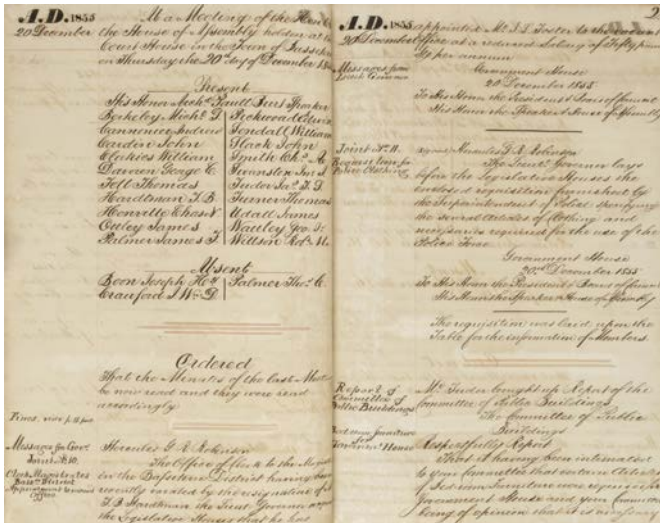 A.D. 1855
20 December
At a Meeting of the Hon
the House of Assembly holden at the
Court House in the Town of Basseterre
on Thursday the 20th day of December 1855
Present
His Honor Michl. Burt Speaker
Berkeley Michl. D.
Cardin John
William
Darrell George C.
Fell Thomas
Hardtman T. B.
Horsville Chas.
Ottley James
Palmer James T.
Pickwood Edwin
William
Slack John
Smith Chs. A.
Swanston Jn. S.
Tudor Jas. T. D.
Turner Thomas
Udall James
Wattley Geo.
Willson Robt. M.
Absent
Boon Joseph Hy.
Crawford J. Wm. D.
Palmer Thos. C.
Ordered
That the Minutes of the last Meet
be now read and they were read
accordingly
Messages fm. Govr.
Clerk Magistrates
Bass. District
Appointment
Office
Hercules G. R. Robinson
The Office of Clerk to the Magis
in the Basseterre District having been
recently vacated by the resignation of
T. B. Hardtman the Lieut Governor
the Legislative Houses that he has
A.D. 1855
20 December
appointed Mr. J. L. Foster to the vacant
Office at a reduced Salary of Fifty pounds
Stg. per annum
Messages from
Lieut. Governor
Government House
20 December 1855
To His Honor the President & Board of Council
His Honor the Speaker & House of Assembly
Joint No. 11.
Requisition for
Police Clothing
signed Hercules G. R. Robinson
The Lieut. Governor lays
before the Legislative Houses the
enclosed requisition furnished by
the Superintendent of Police specifying
the several Articles of Clothing and
necessaries required for the use of the
Police Force
Government House
20th December 1855
To His Honor the President & Board of Council
His Honor the Speaker & House of Assembly
The requisition was laid upon the
Table for the information of Members.
Report of
Committee of
Public Buildings
Mr. Tudor brought up Report of the
Committee of Public Buildings.
The Committee of Public
Buildings
Bed room furniture
for
Governmt. House
Respectfully Report
That it having been intimated
to your Committee that certain Articles
of Bed room Furniture were required for
Government House and your Committee
being of opinion that it is necessary